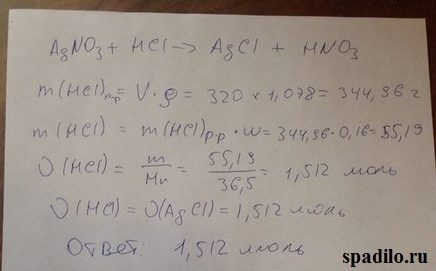 AgNO3 + HCl → AgCl + HNO3
m(HCl)р-р = V·ρ = 320 × 1,078 = 344,96 г
m(HCl) = m(HCl)р-р · w = 344,96·0,16 = 55,19
ν(HCl) = m/Mr = 55,19/36,5 = 1,512 моль
ν(HCl) = ν(AgCl) = 1,512 моль
Ответ: 1,512 моль
spadilo.ru